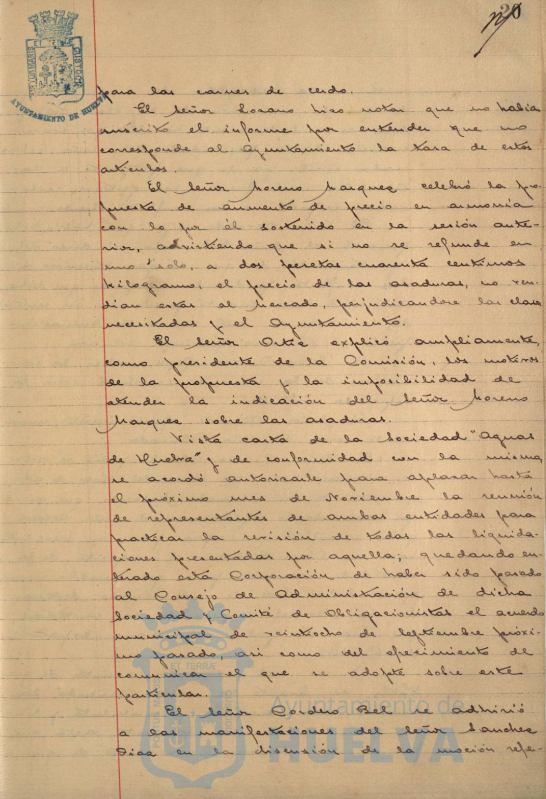 20
AYUNTAMIENTO DE HUELVA
para las carnes de cerdo.
El Señor Lozano hizo notar que no había
suscrito el informe por entender que no
corresponde al Ayuntamiento la tasa de estos
artículos.
El Señor Moreno Marquez celebró la pro
puesta de aumento de precio en armonía
con lo por él sostenido en la sesión ante-
rior, advirtiendo que si no se refunde en
uno solo, a dos pesetas cuarenta centimos
kilogramo, el precio de las asaduras, no ven-
drian estas al Mercado, perjudicandose las clases
necesitadas y el Ayuntamiento.
El Señor Ortiz explicó ampliamente,
como presidente de la Comisión, los motivos
de la propuesta y la imposibilidad de
atender la indicación del Señor Moreno
Marquez sobre las asaduras.
Vista carta de la Sociedad "Aguas
de Huelva" y de conformidad con la misma
se acordó autorizarle para aplazar hasta
el próximo mes de Noviembre la reunión
de representantes de ambas entidades para
practicar la revisión de todas las liquida-
ciones presentadas por aquella; quedando en-
terado esta Corporación de haber sido pasado
al Consejo de Administración de dicha
Sociedad y Comité de Obligacionistas el acuerdo
municipal de veintiocho de Septiembre próxi-
mo pasado, asi como del ofrecimiento de
comunicar el que se adopte sobre este
particular.
El Señor Cordero Bel se adhirió
a las manifestaciones del Señor Sanchez
Diaz en la discusión de la moción refe-
Ayuntamiento de
HUELVA